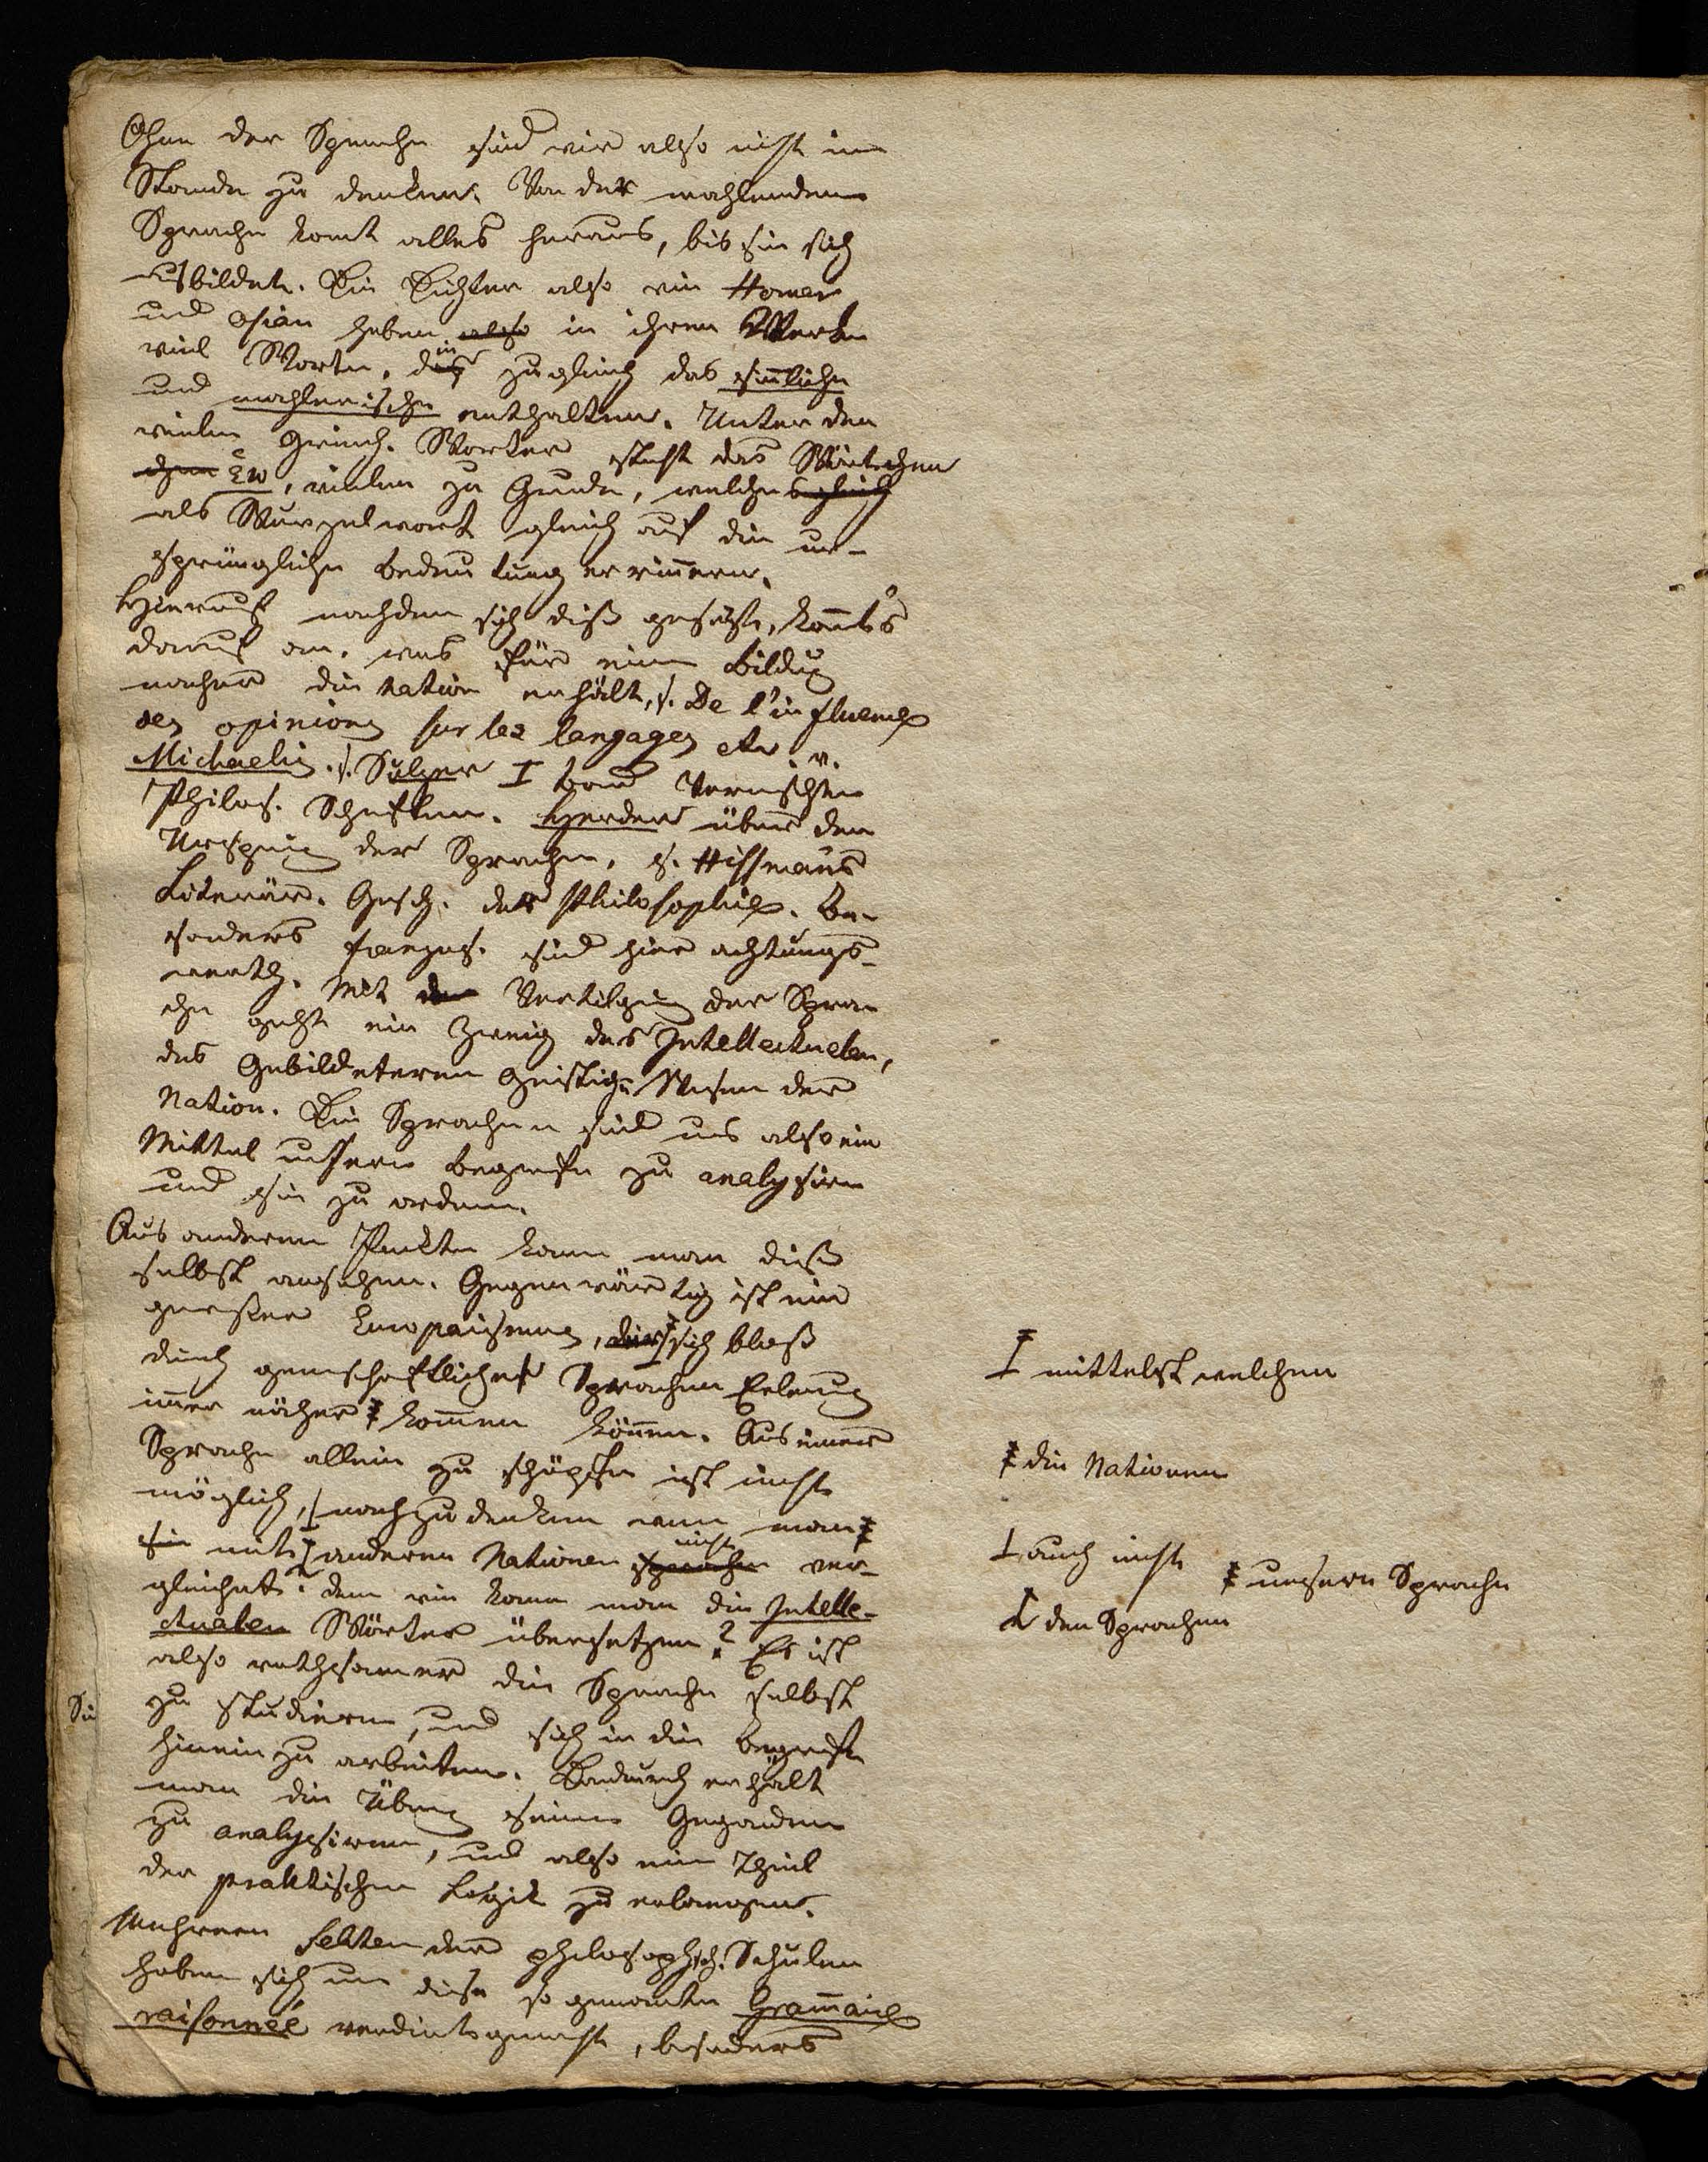 Ohne der Sprache sind wir also nicht im
Stande zu denken. Von der mahlenden
Sprache komt alles heraus, bis sie sich
ausbildet. Die Dichter also ein Homer
und Osian haben also in ihren Werken
viel Worte, die zugleich das sinnliche
und mahlerische enthalten. Unter den
vielen Griech. Worter steht das Wörtchen
chen εω, vielen zu Grunde, welches gleich
als Wurzelwort gleich auf die ur-
sprüngliche Bedeutung errinnern.
Hierauf nachdem sich diß gesetzt, komt's
darauf an, was für eine Bildug
nachher die Nation erhält, s. De l'influence
des opinions sur les langages etc. v.
Michaelis. s. Sulzer I Band Vermischten
Philos. Schriften. Herder über den
Ursprung der Sprachen, s. Hissmans
Literär. Gesch. der Philosophie. Be-
sonders franzos. sind hier achtungs-
werth. Mit der Vertilgung der Spra-
che geht ein Zweig des Intellectuelen,
des Gebildeteren Geistigen Wesen der
Nation. Die Sprachen sind uns also ein
Mittel unsere Begriffe zu analysiren
und sie zu ordnen.
Aus anderen Punkten kann man diese
selbst ansehen. Gegenwärtig ist ein
grosser Europaismus, durch sich bloß
I mittelst welchen
durch gemeschaftlicher Sprachen Erlernung
immer näher ‡ kommen können. Aus einer
‡ die Nationen
Sprache allein zu schöpfen ist nicht
möglich, nachzudenken wenn man ‡
⊥ auch nicht
‡ unsere Sprache
sie mit anderen Nationen sprachen nicht ver-
gleichet: denn wie kann man die Intelle-
I den Sprachen
ctualen Wörter übersetzen? Es ist
also rathsamer die Sprache selbst
zu studieren, und sich in die Begriffe
hinein zu arbeiten. Dadurch erhält
man die Übung seine Geganden
zu analysiren, und also ein Theil
der praktischen Logik zu erlangen.
Mehrere Sekten der philosophsch. Schulen
haben sich um diese so genanten Grammaire
raisonnée verdient gemacht, besonders